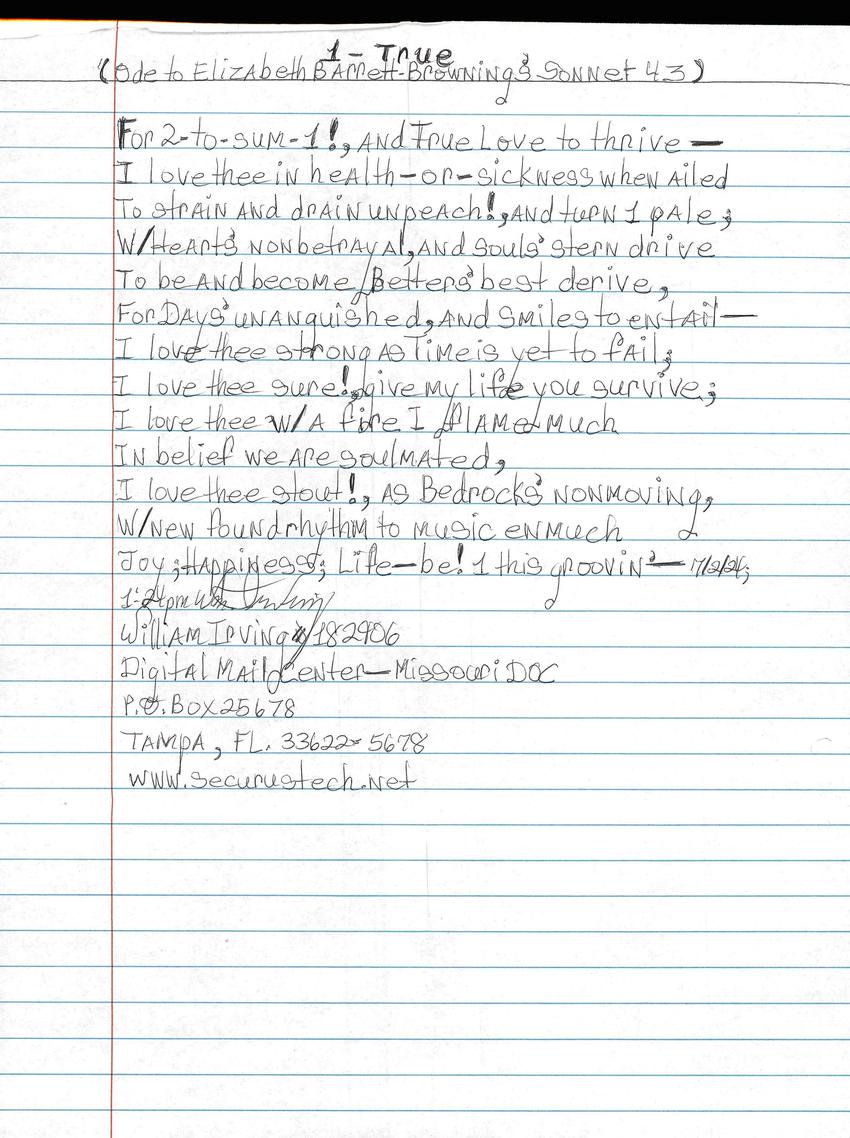 1 - True
(Ode to Elizabeth Barrett-Browning's Sonnet 43)
For 2-to-sum-1!, and True Love to thrive —
I love thee in health-or-sickness when ailed
To strain and drain unpeach!, and turn 1 pale;
W/Hearts' nonbetrayal, and souls' stern drive
To be and become Betters' best derive,
For Days' unanquished, and smiles to entail—
I love thee strong as Time is yet to fail;
I love thee sure!, give my life you survive;
I love thee w/a fire I flamed much
In belief we are soulmated,
I love thee stout!, as Bedrocks' nonmoving,
W/new found rhythm to music enmuch
Joy; Happiness; Life—be! 1 this groovin'— 7/2/24;
1:24pm
William Irving #182906
Digital Mail Center—Missouri DOC
P.O. Box 25678
Tampa, FL. 33622-5678
www.securustech.net